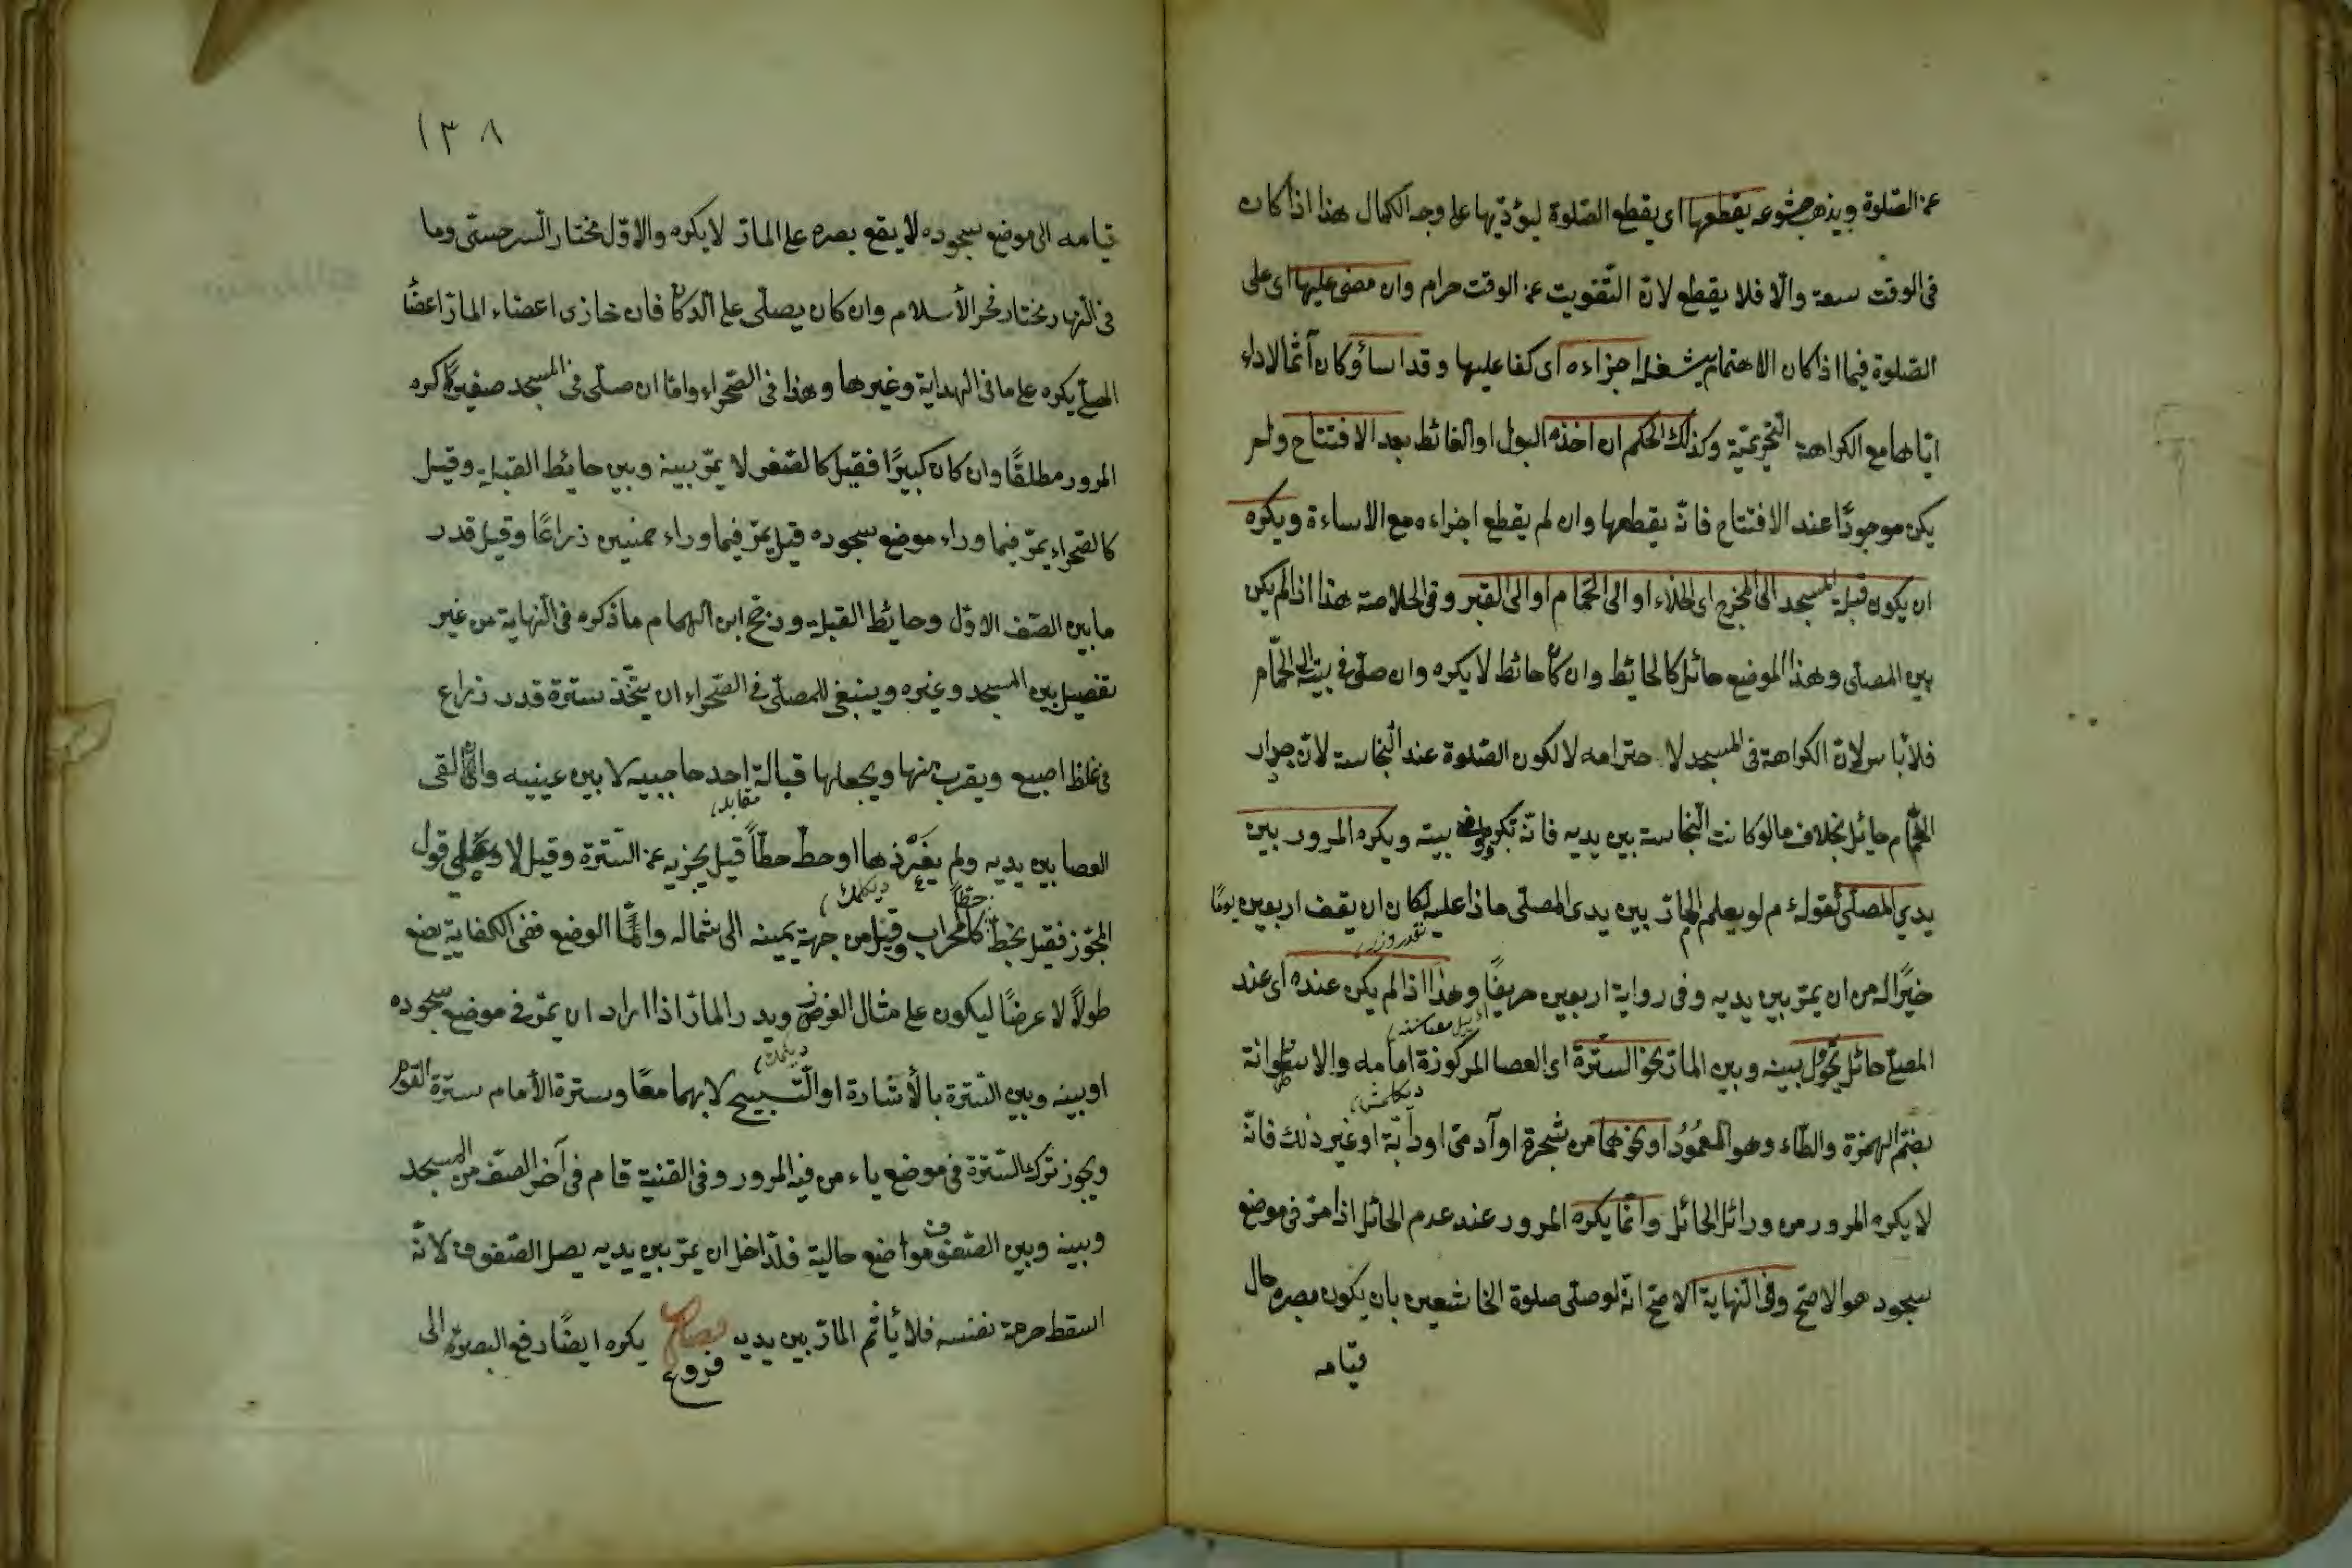 عن الصلوة ويذهب خشوعه يقطعها اى يقطع الصلوة ليؤدّيها على وجه الكمال هذا اذا كان
فى الوقت سعة والّا فلا يقطع لانّ التّفويت عن الوقت حرام وان مضى عليها اى على
الصّلوة فيما اذا كان الاهتمام يشغله اجزاءه اى كفا عليها وقد اساؤ كان آثما لاداء
ايّاها مع الكراهة التّحريميّة وكذلك الحكم ان اخذه البول او الغائط بعد الافتتاح ولم
يكن موجودًا عند الافتتاح فانّه يقطعها وان لم يقطع اجزاءه مع الاساءة ويكره
ان يكون قبلة المسجد الى المخرج اى الخلاء او الى الحمّام او الى القبر وفى الخلاصة هذا اذا لم يكن
بين المصلّى وهذا الموضع حائل كالحائط وان كان حائط لا يكره وان صلّى فى بيته الى الحمّام
فلا بأس لانّ الكراهة فى المسجد لاحترامه لا لكون الصّلوة عند النّجاسة لانّ جدار
الحمّام حائل بخلاف ما لو كانت النّجاسة بين يديه فانّه تكره ولو فى بيته ويكره المرور بين
يدي المصلّى لقوله ء م لو يعلم المارّ بين يدى المصلّى ماذا عليه لكان ان يقف اربعين يومًا
خيرًا له من ان يمرّ بين يديه وفى رواية اربعين خريفًا وهذا اذا لم يكن عنده اى عند
المصلّى حائل يحول بينه وبين المارّ نحو السّترة اى العصا المركوزة امامه والاسطوانة
بضمّ الهمزة والطّاء وهو العمُودُ او نحوهما من شجرة او آدمىّ او دآبّة او غير ذلك فانّه
لا يكره المرور من ورائل الحائل وانّما يكره المرور عند عدم الحائل اذا مرّ فى موضع
سجود هو الاصحّ وفى النّهاية الاصحّ انّه لو صلّى صلوة الخاشعين بان يكون بصره حال
قيامه
١٣٨
قيامه الى موضع سجوده لا يقع بصره على المارّ لا يكره والاوّل مختار السرخسىّ وما
فى النّهار مختار فخر الأسلام وان كان يصلّى على الدّكان فان حاذى اعضاء المارّ اعضًا
المصلّى يكره على ما فى الهداية وغيرها وهذا فى الصّحراء وامّا ان صلّى فى المسجد صغيرًا كره
المرور مطلقًا وان كان كبيرًا فقيل كالصّغير لا يمرّ بينه وبين حايط القبلة وقيل
كالصّحراء يمرّ فيما وراء موضع سجوده قيل يمرّ فيما وراء خمسين ذراعًا وقيل قدر
ما بين الصّف الاوّل وحائط القبلة ورجّح ابن الهمام ما ذكره فى النّهاية من غير
تفصيل بين المسجد وغيره وينبغى للمصلّى فى الصّحراء ان يتّخذ سترة قدر ذراع
فى غلظ اصبع ويقرب منها ويجعلها قبالة احد حاجبيه لا بين عينيه وان القى
مقابله
العصا بين يديه ولم يغرّزها او خطّ خطّاً قيل يجزيه عن السّترة وقيل لا وعلى قول
ديكمك خطّاً
المجّوز فقيل يخطّ كالمحراب وقيل من جهة يمينه الى شماله وامّا الوضع ففى الكفاية يضع
طولًا لا عرضًا ليكون على مثال الغرز ويدرء المارّ اذا اراد ان يمرّ فى موضع سجوده
ديكمك
او بينه وبين السّترة بالأشارة او التّسبيح لا بهما معًا وسترة الأمام سترة القوم
ويجوز ترك السّترة فى موضع ياء من فيه المرور وفى القنية قام فى آخر الصّف من المسجد
وبينه وبين الصّفوف مواضع خالية فللدّاخل ان يمرّ بين يديه يصل الصّفوف لانّه
اسقط حرمة نفسه فلا يأثم المارّ بين يديه يكره ايضًا رفع البصر الى
فروع